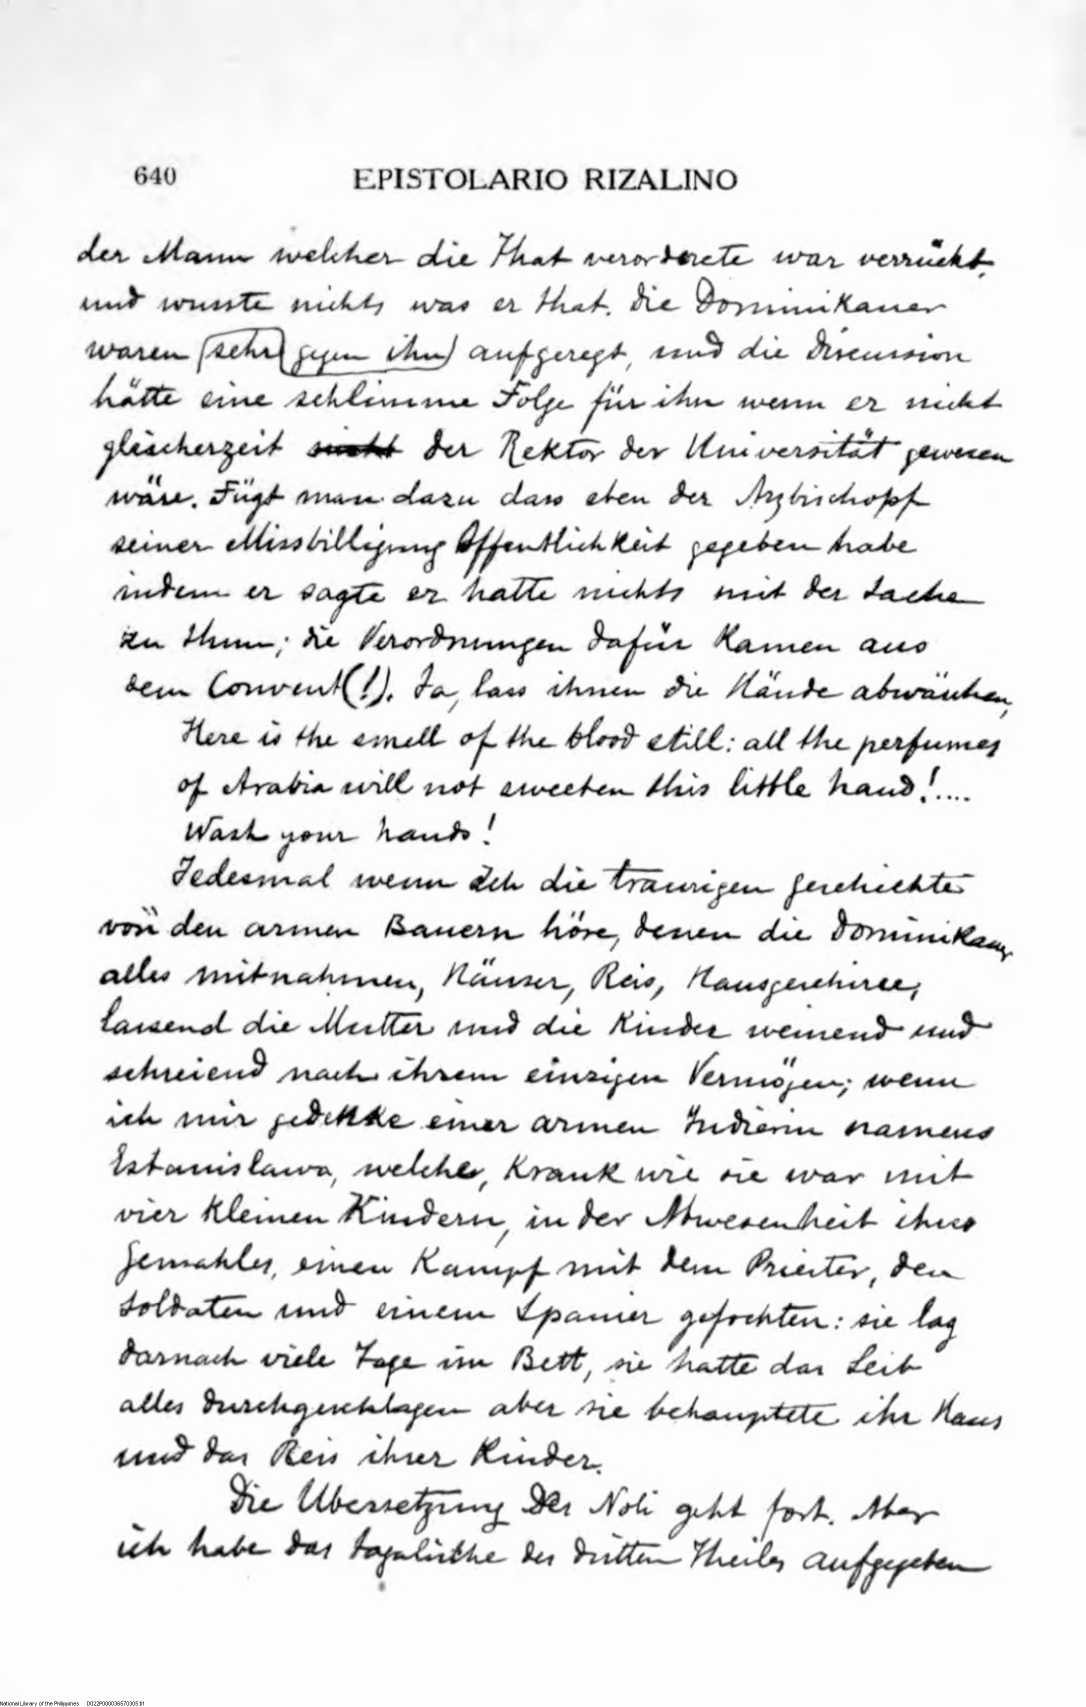 640 EPISTOLARIO RIZALINO
der Mann welcher die That verorderete war verrückt,
und wusste nichts was er that. Die Dominikaner
waren (sehr) (gegen ihn) aufgeregt, und die Discussion
hätte eine schlimme Folge für ihn wenn er nicht
gleicherzeit nicht der Rektor der Universität gewesen
wäre. Fügt man dazu dass eben der Arzbischopf
seiner Missbilligung Öffentlichkeit gegeben habe
indem er sagte er hatte nichts mit der Sache
zu thun; die Verordnungen dafür kamen aus
dem Convent(!). Ja, lass ihnen die Hände abwäschen,
Here is the smell of the blood still: all the perfumes
of Arabia will not sweeten this little hand!....
Wash your hands!
Jedesmal wenn Ich die traurigen Geschichte
von den armen Bauern höre, denen die Dominikaner
alles mitnahmen, Häuser, Reis, Hausgeschirre,
lassend die Mutter und die Kinder weinend und
schreiend nach ihrem einzigen Vermögen; wenn
ich mir gedenke einer armen Indierin namens
Estanislawa, welche, krank wie sie war mit
vier kleinen Kindern, in der Abwesenheit ihres
Gemahles, einen Kampf mit dem Priester, den
Soldaten und einem Spanier gefochten: sie lag
darnach viele Tage im Bett, sie hatte das Leib
alles durchgeschlagen aber sie behauptete ihr Haus
und das Reis ihrer Kinder.
Die Ubersetzung Der Noli geht fort. Aber
ich habe das tagalische des dritten Theiles aufgegeben
National Library of the Philippines